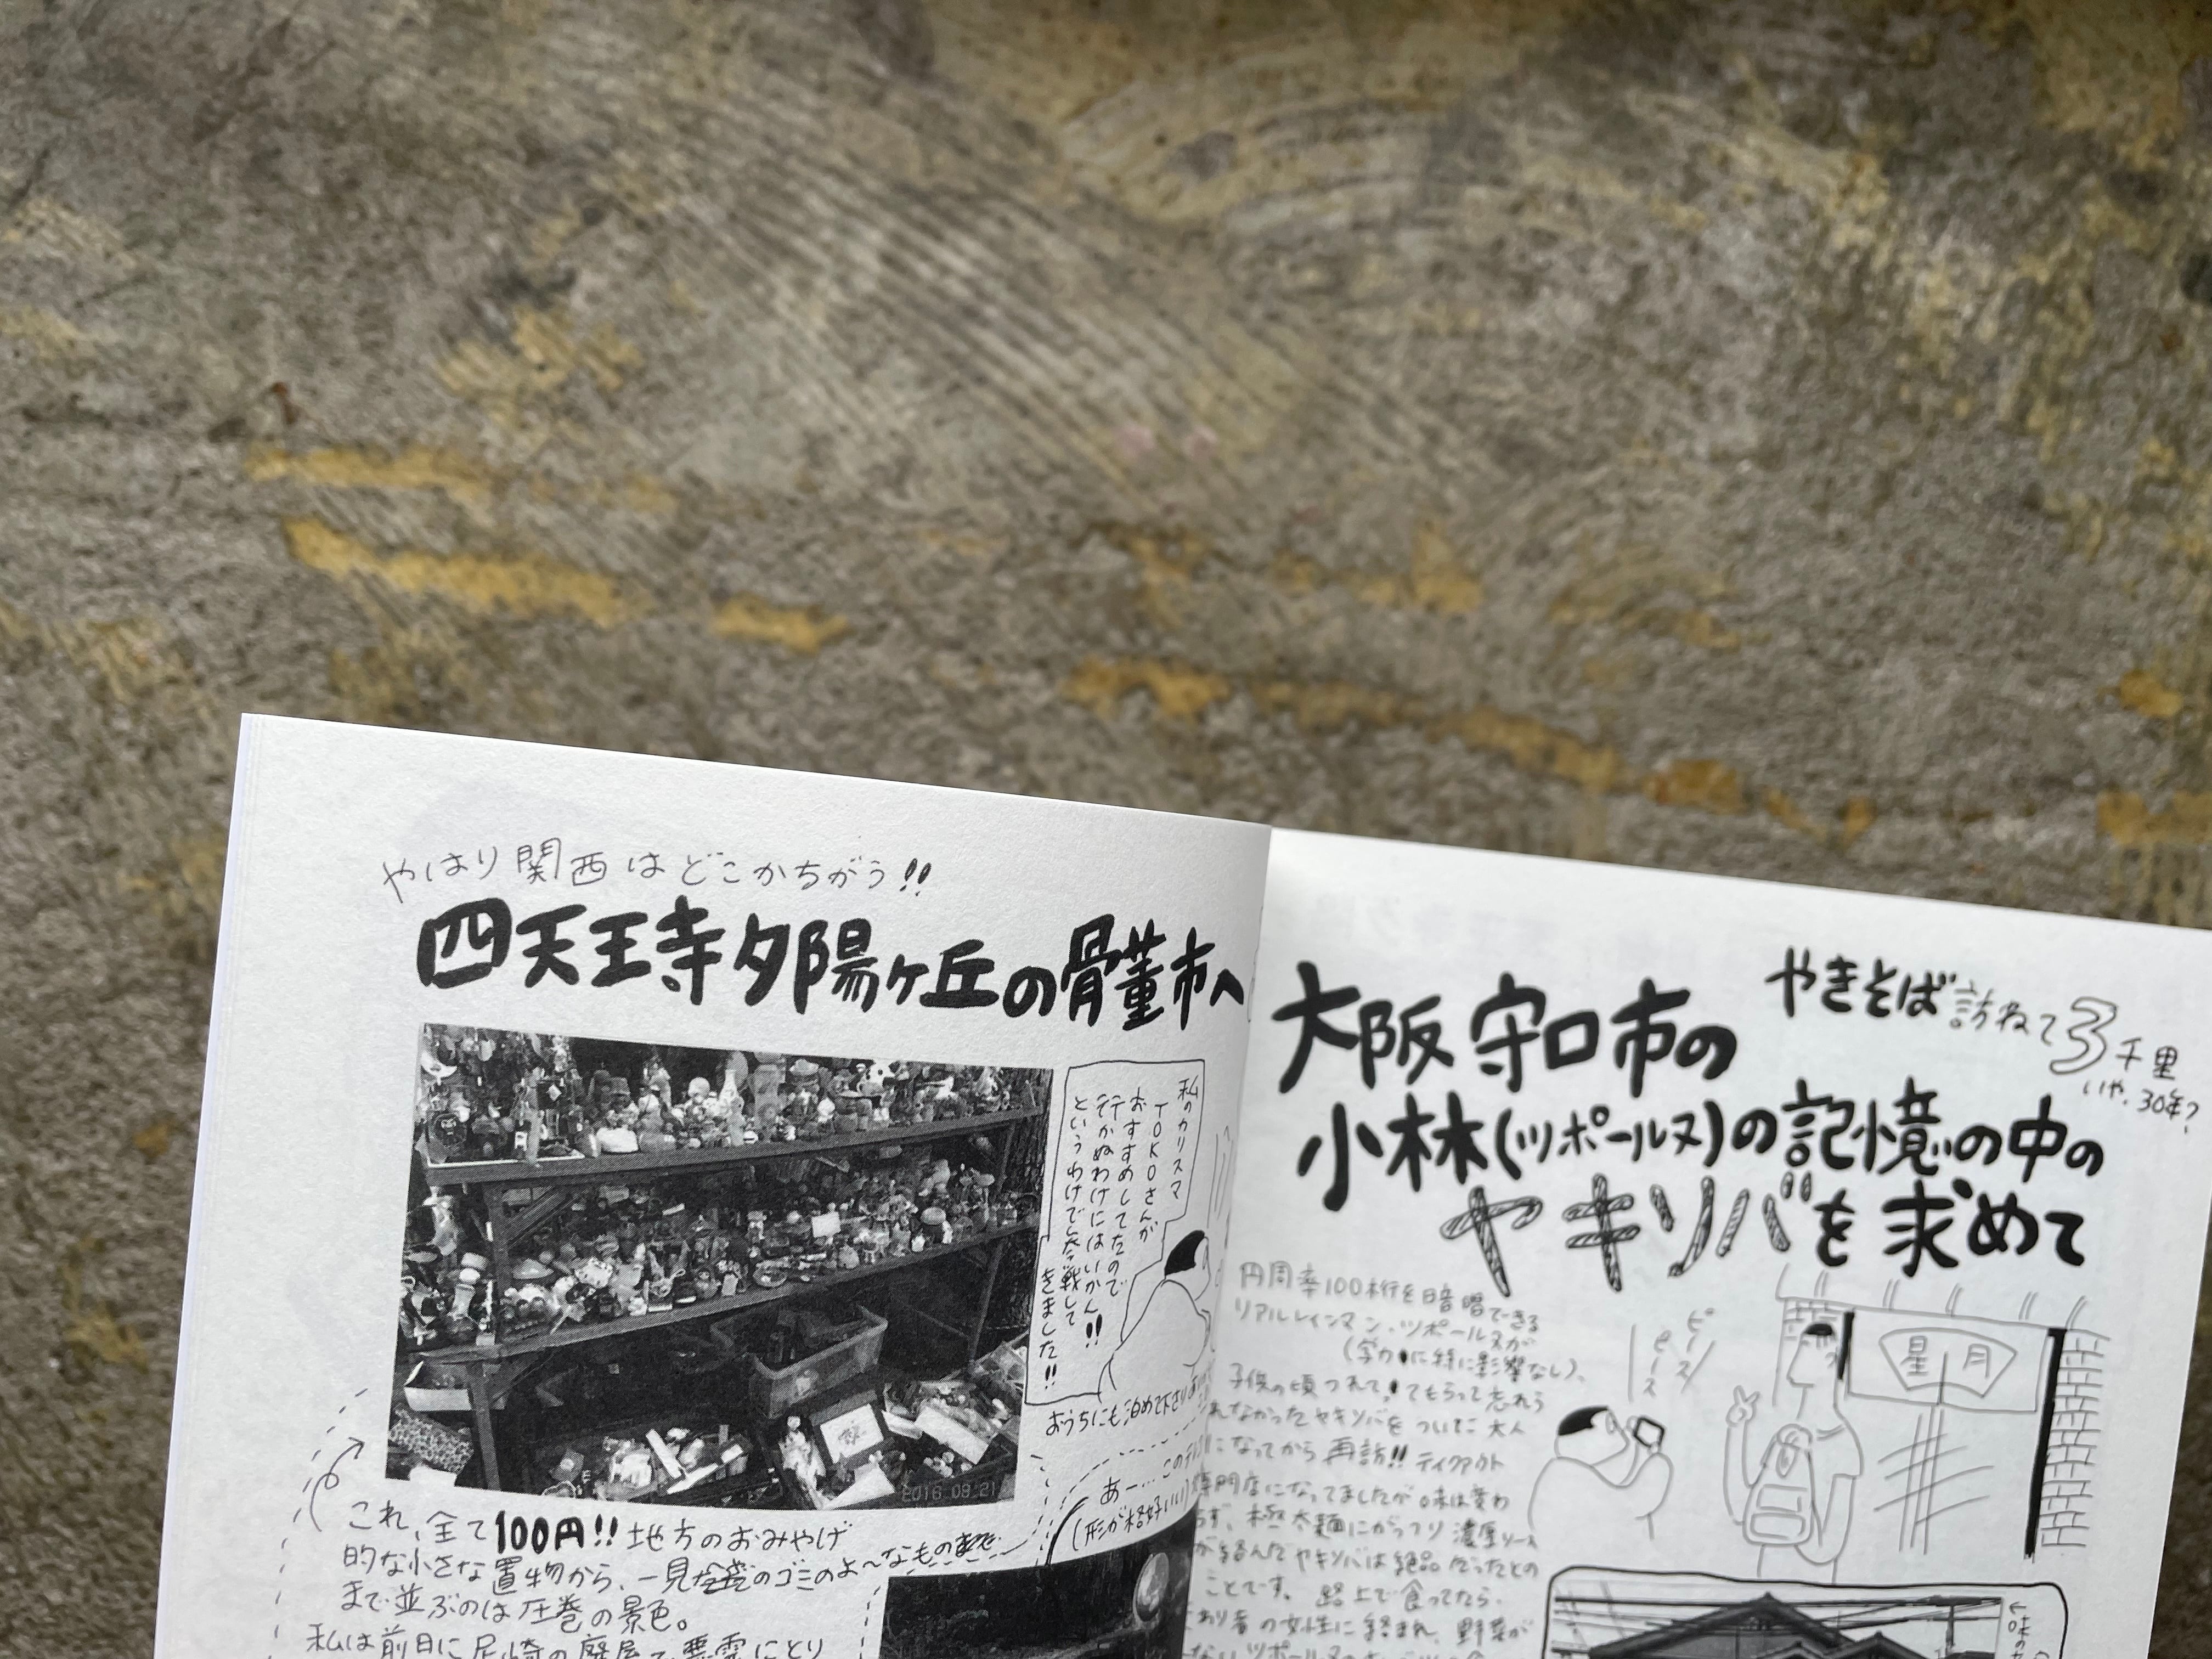 やはり関西はどこかちがう!!
四天王寺夕陽ヶ丘の骨董市へ
私のカリスマ
YOKOさんが
おすすめしてたので
行かぬわけにはいかん!!
というわけで参戦して
きました!!
おうちにも泊めて下さり
2016 09 21
これ、全て100円!! 地方のおみやげ
的な小さな置物から、一見全部のゴミのよ〜なものまで
まで並ぶのは圧巻の景色。
私は前日に尼崎の廃屋で悪霊にとり
あー…このテレ
(形が格好いい)
やきそば訪ねて3千里
いや、30年?
大阪守口市の
小林(ツポールヌ)の記憶の中の
ヤキソバを求めて
円周率100桁を暗唱できる
リアルレインマン、ツポールヌが
(学力に特に影響なし)、
子供の頃つれてってもらって忘れら
れなかったヤキソバをついに大人
になってから再訪!! テイクアウト
専門店になってましたが味は変わ
らず、極太麺にがっつり濃厚ソース
が絡んだヤキソバは絶品だったとの
ことです。路上で食ってたら、
わり者の女性に絡まれ、野菜が
ない
ピース
ピース
星月
←味の